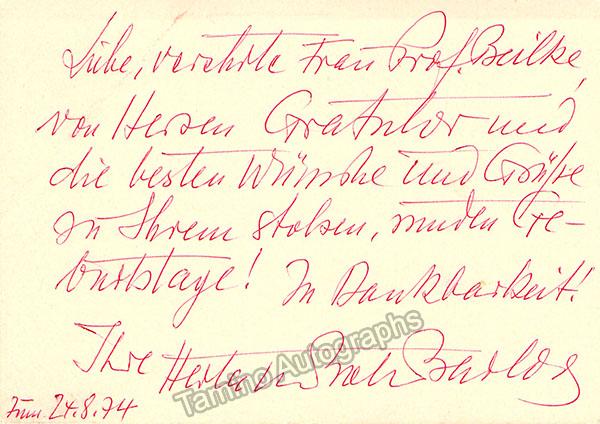 Liebe, verehrte Frau Prof. Beilke,
von Herzen Gratulor und
die besten Wünsche und Grüße
zu Ihrem stolzen, runden Ge-
burtstage! In Dankbarkeit!
Ihre Herta
24.8.74
Tamino Autographs